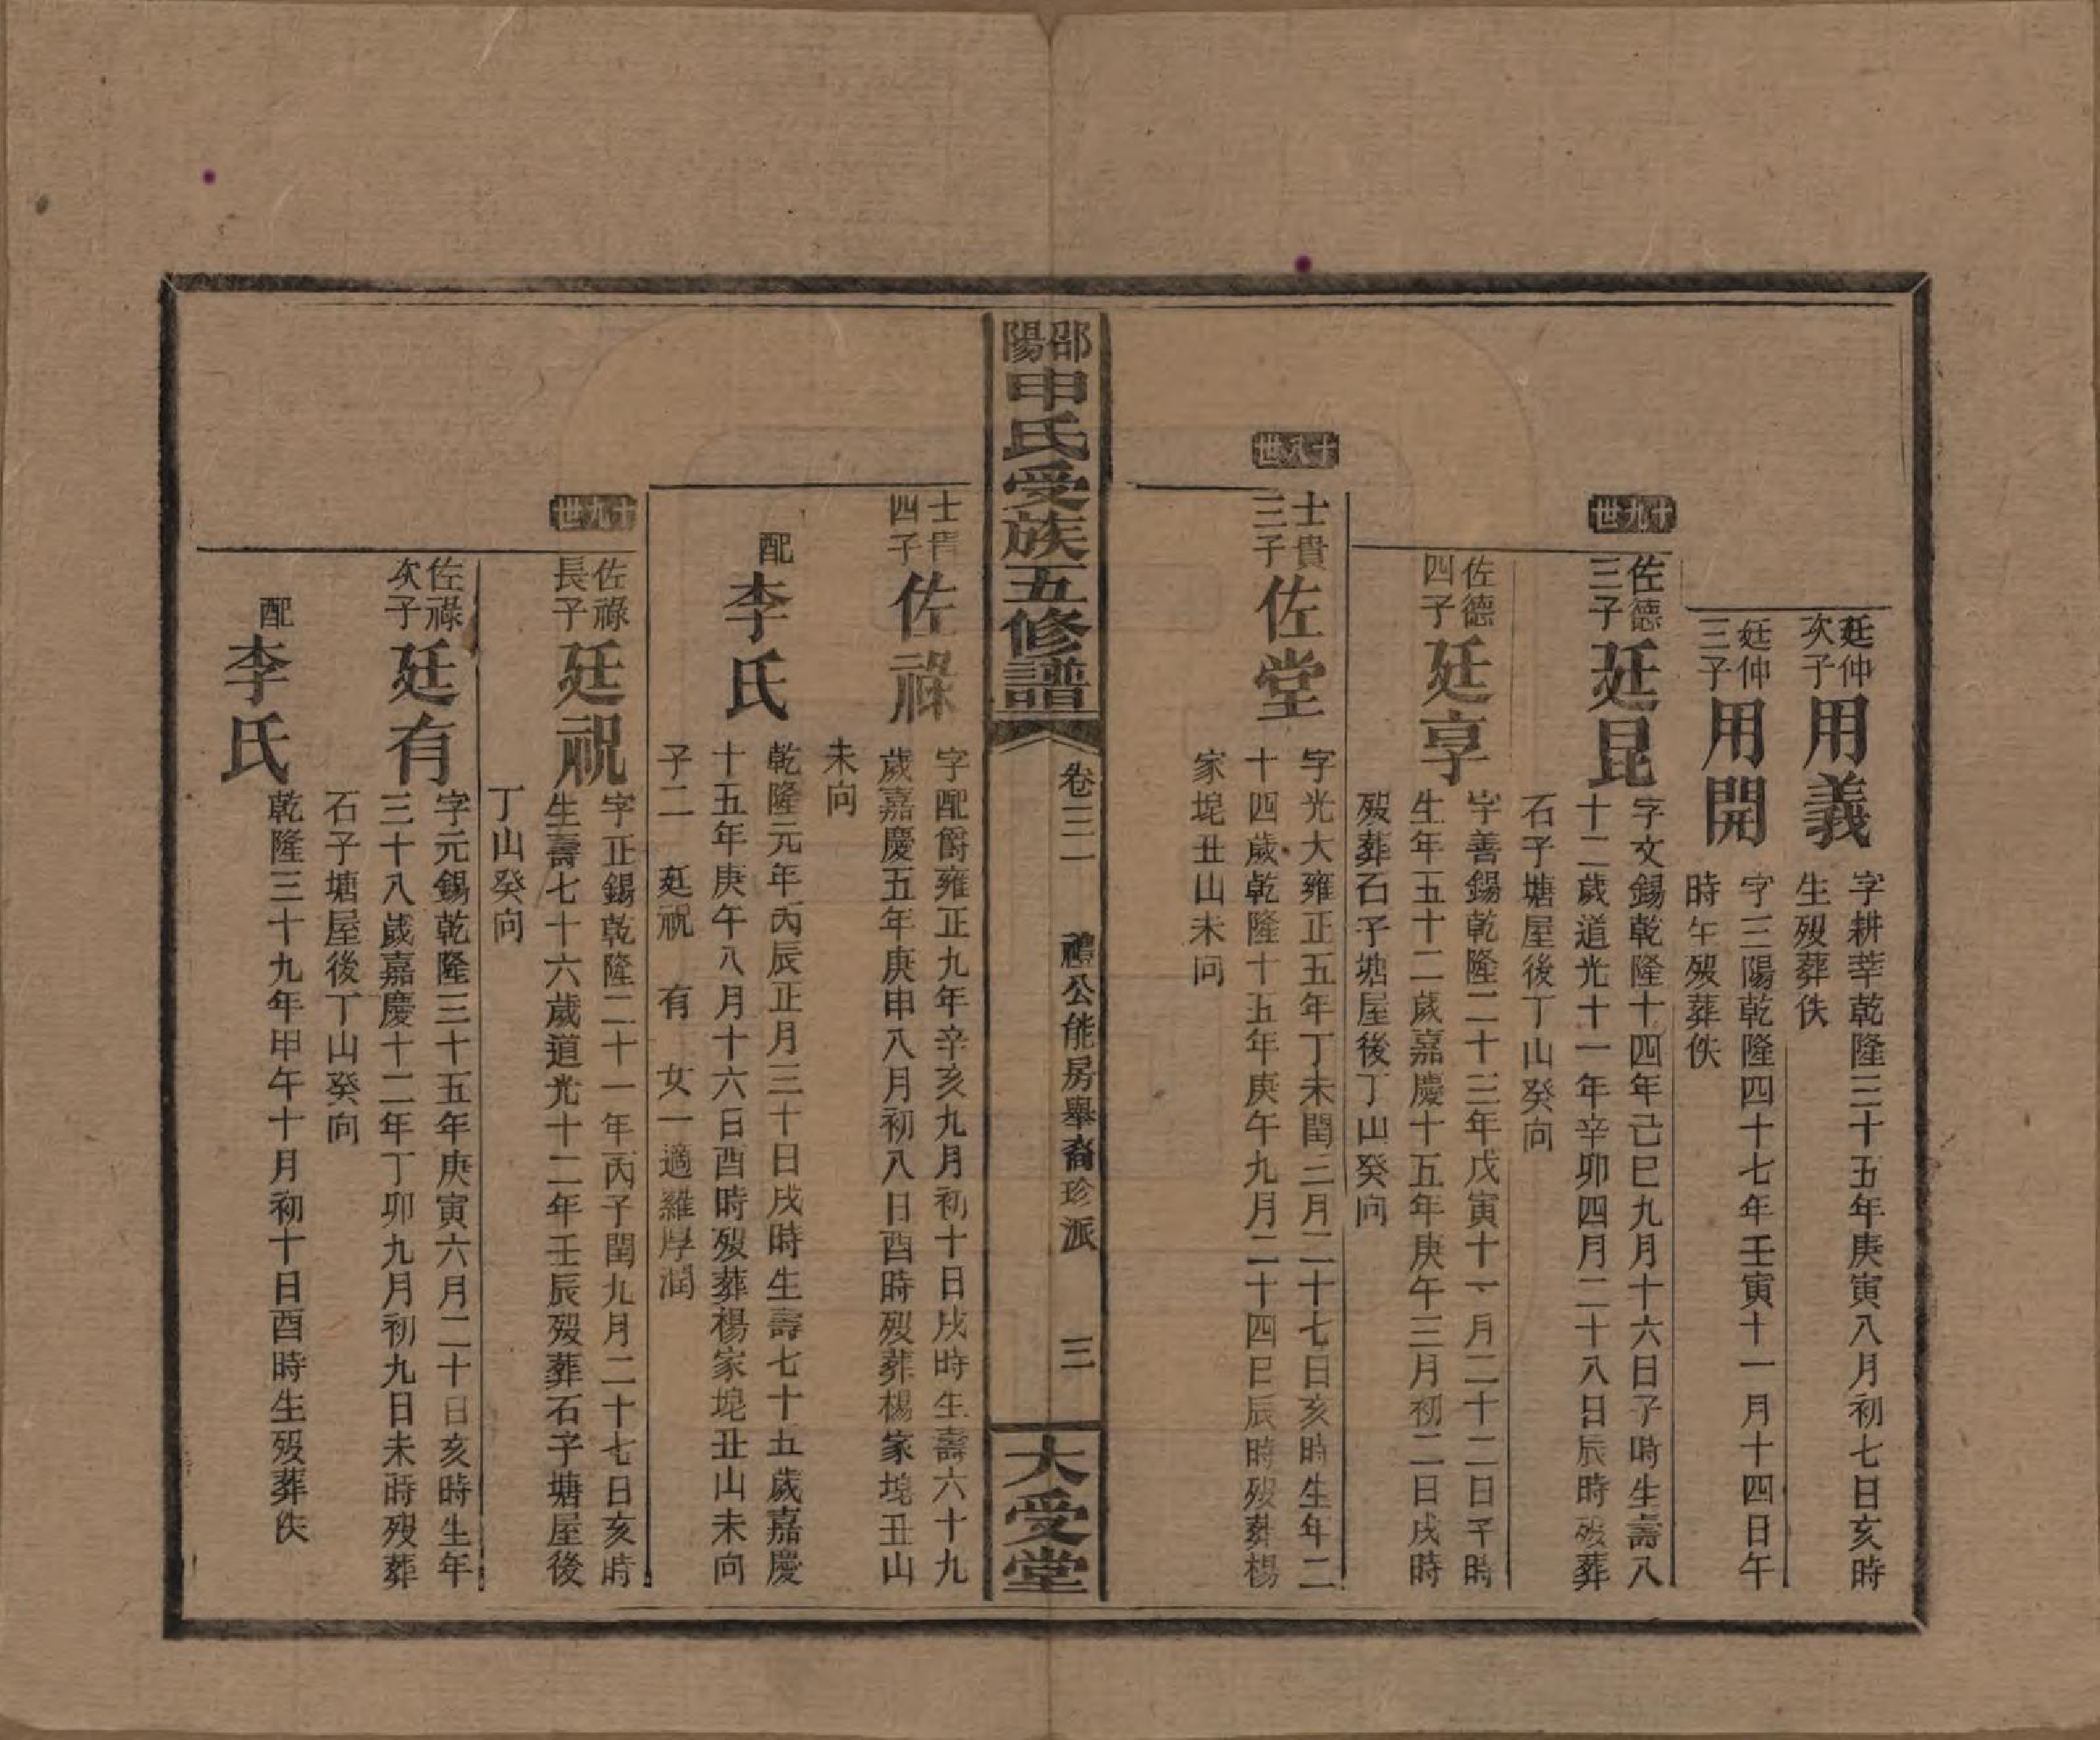 廷仲
次子
用義
字耕莘乾隆三十五年庚寅八月初七日亥時
生歿葬佚
廷仲
三子
用開
字三陽乾隆四十七年壬寅十一月十四日午
時午歿葬佚
十九世
佐德
三子
廷昆
字文錫乾隆十四年己巳九月十六日子時生壽八
十二歲道光十一年辛卯四月二十八日辰時歿葬
石子塘屋後丁山癸向
佐德
四子
廷享
字善錫乾隆二十三年戊寅十一月二十二日子時
生年五十二歲嘉慶十五年庚午三月初二日戌時
歿葬石子塘屋後丁山癸向
十八世
士貴
三子
佐堂
字光大雍正五年丁未閏三月二十七日亥時生年二
十四歲乾隆十五年庚午九月二十四日辰時歿葬楊
家垸丑山未向
邵陽申氏受族五修譜
卷三一
禮公能房舉裔珍派
三
大受堂
士貴
四子
佐祿
字配爵雍正九年辛亥九月初十日戌時生壽六十九
歲嘉慶五年庚申八月初八日酉時歿葬楊家垸丑山
未向
配
李氏
乾隆元年丙辰正月三十日戌時生壽七十五歲嘉慶
十五年庚午八月十六日酉時歿葬楊家垸丑山未向
子二 廷祝 有 女一適羅厚潤
十九世
佐祿
長子
廷祝
字正錫乾隆二十一年丙子閏九月二十七日亥時
生壽七十六歲道光十二年壬辰歿葬石子塘屋後
丁山癸向
佐祿
次子
廷有
字元錫乾隆三十五年庚寅六月二十日亥時生年
三十八歲嘉慶十二年丁卯九月初九日未時歿葬
石子塘屋後丁山癸向
配
李氏
乾隆三十九年甲午十月初十日酉時生歿葬佚